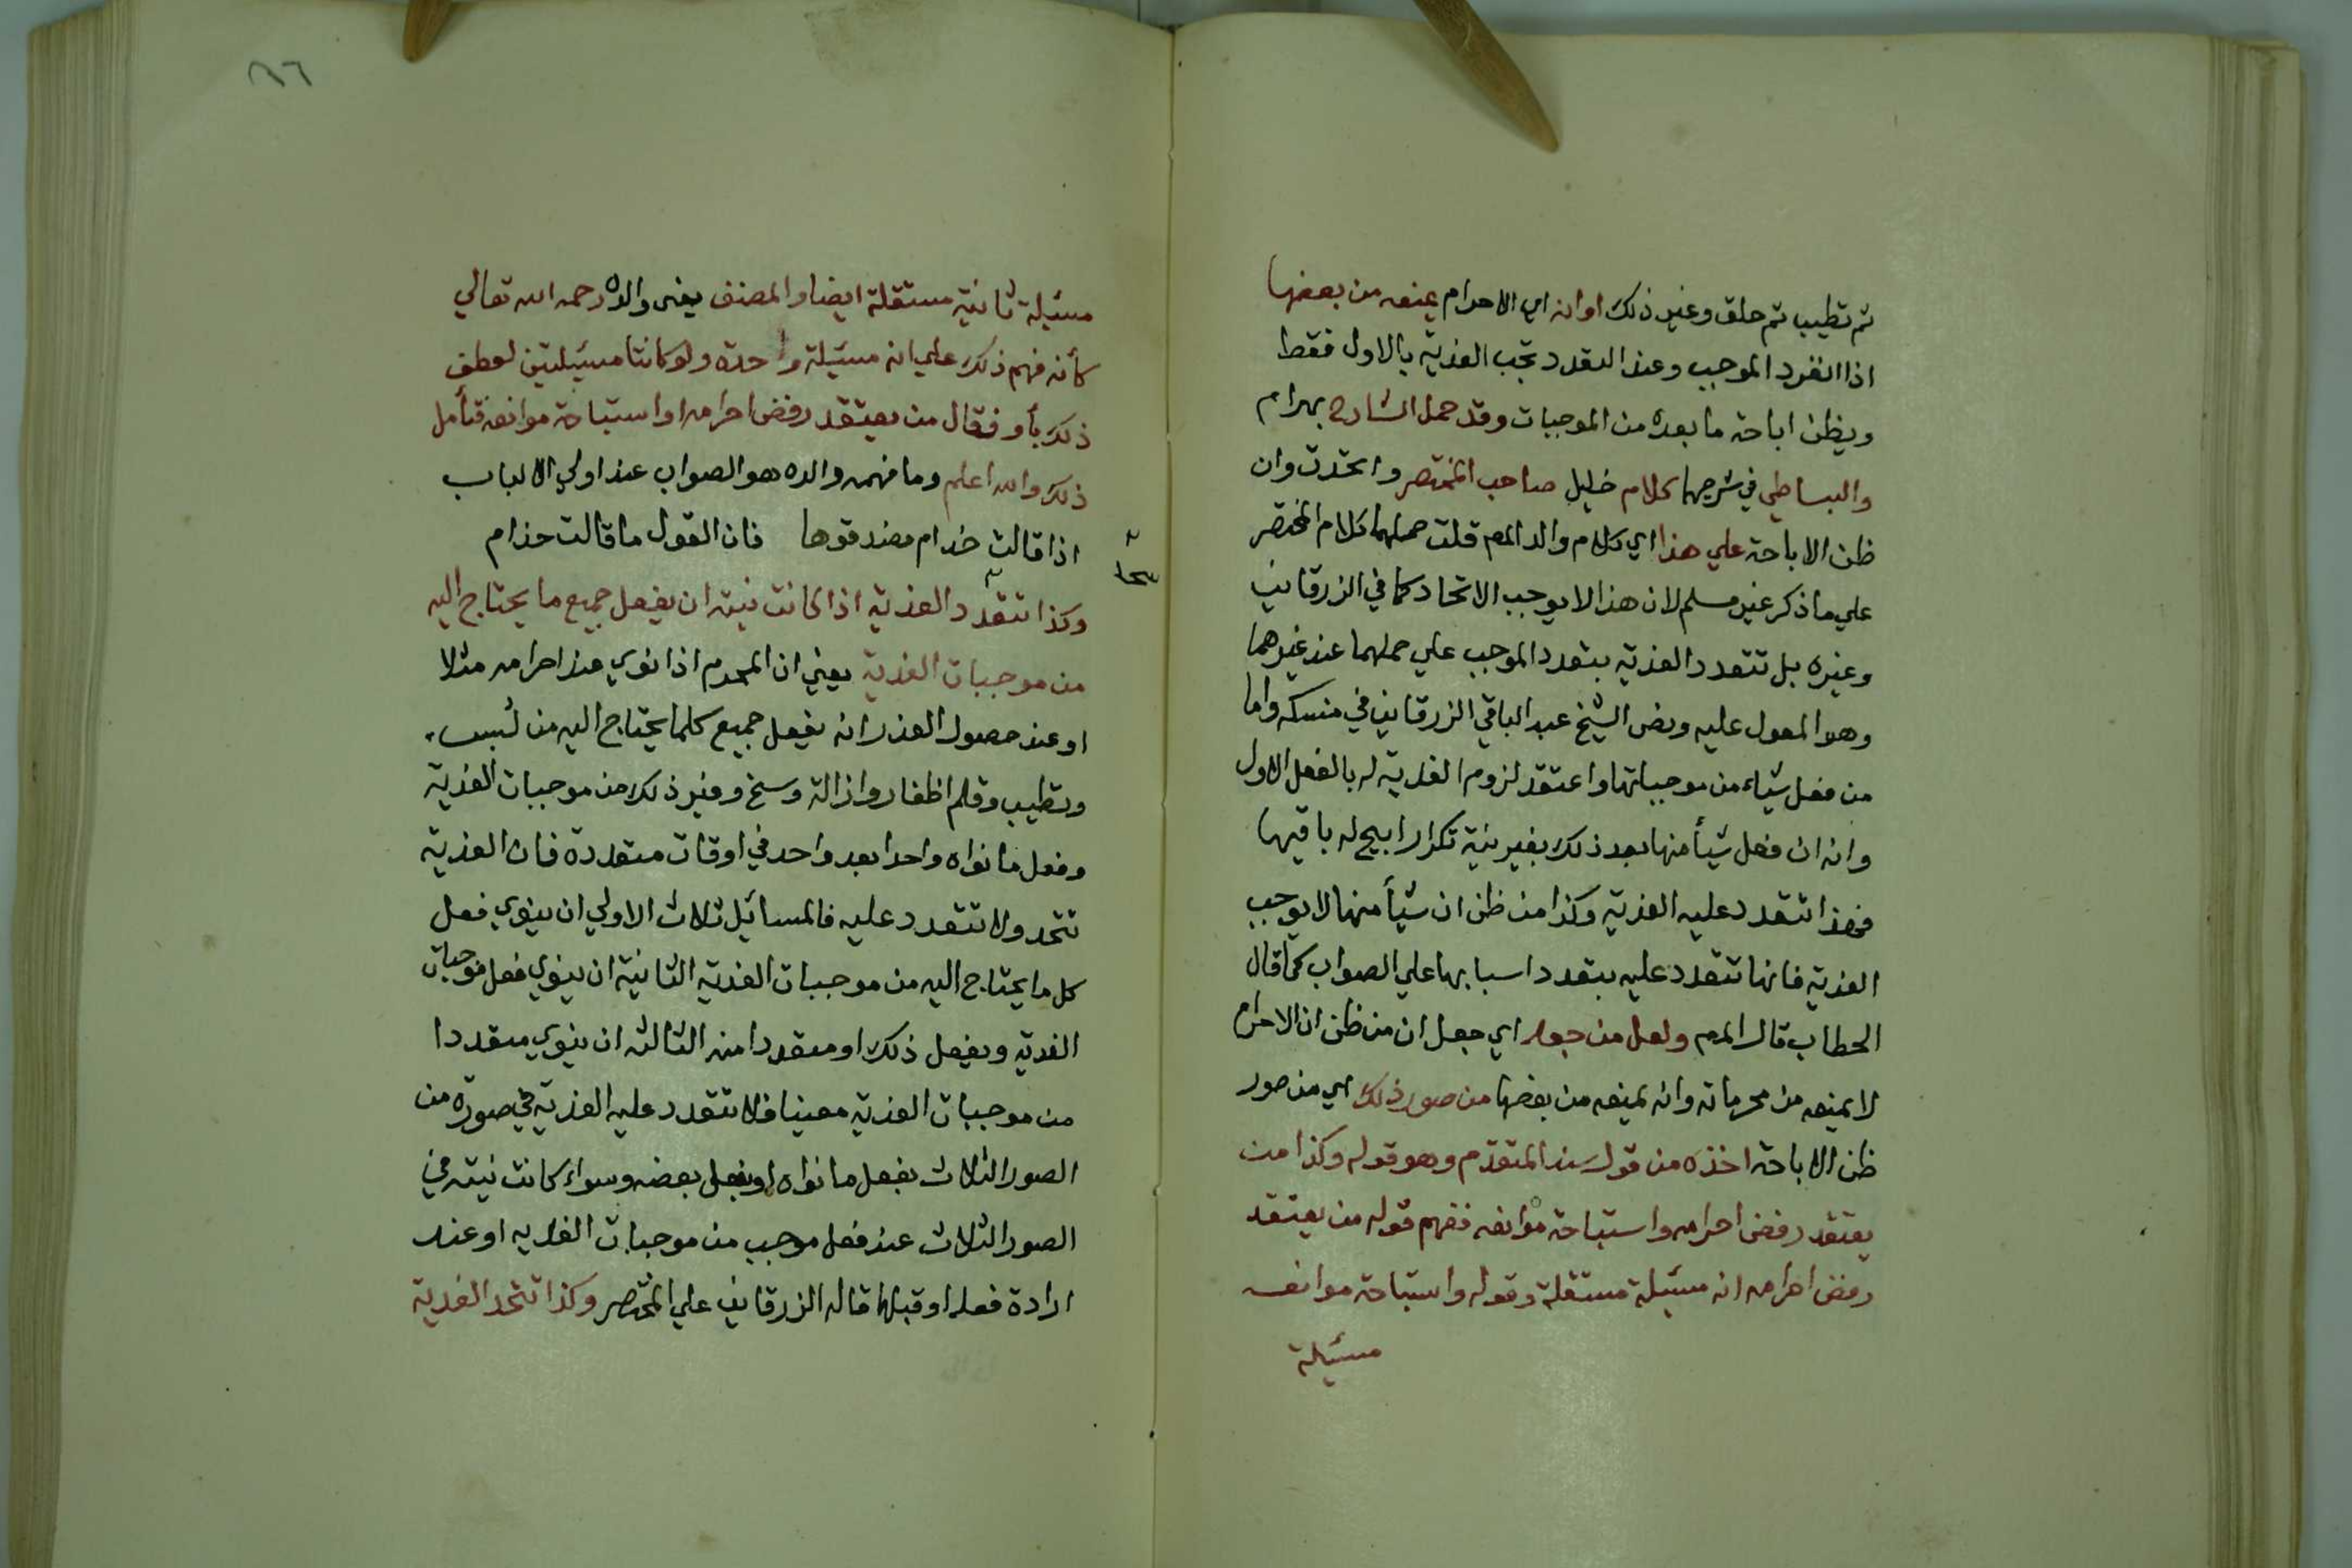 ثم تطيب ثم حلق وغير ذلك او انه اي الاحرام يمنعه من بعضها
اذا انفرد الموجب وعند التعدد تجب الفدية بالاول فقط
ويظن اباحة ما بعده من الموجبات وقد حمل الشارح بهرام
والبساطي في شرحهما كلام خليل صاحب المختصر واتحدت وان
ظن الاباحة علي هذا اي كلام والد المص قلت حملهما كلام المختصر
علي ما ذكر غير مسلم لان هذا لا يوجب الاتحاد كما في الزرقاني
وغيره بل تتعدد الفدية بتعدد الموجب علي حملهما عند غيرهما
وهو المعول عليه ونص الشيخ عبد الباقي الزرقاني في منسكه واما
من فعل شياء من موجباتها واعتقد لزوم الفدية له بالفعل الاول
وانه ان فعل شيأ منها بعد ذلك بغير نية تكرار ابيح له باقيها
فهذا تتعدد عليه الفدية وكذا من ظن ان شيأ منها لا يوجب
الفدية فانها تتعدد عليه بتعدد اسبابها علي الصواب كما قال
الحطاب قال المص ولعل من جعل اي جعل ان من ظن ان الاحرام
لا يمنعه من محرماته وانه يمنعه من بعضها من صور ذلك اي من صور
ظن الاباحة اخذه من قول سند المتقدم وهو قوله وكذا من
يعتقد رفض احرامه واستباحة موانعه ففهم قوله من يعتقد
رفض احرامه انه مسئلة مستقلة وقوله واستباحة موانعه
مسئلة
٨٦
مسئلة ثانية مستقلة ايضا والمصنف يعني والده رحمه الله تعالي
كأنه فهم ذلك علي انه مسئلة واحدة ولو كانتا مسئلتين لعطف
ذلك بأو فقال من يعتقد رفض احرامه او استباحة موانعه فتأمل
ذلك والله اعلم وما فهمه والده هو الصواب عند اولي الالباب
اذا قالت حذام فصدقوها فان القول ما قالت حذام
وكذا تتعدد الفدية اذا كانت نيته ان يفعل جميع ما يحتاج اليه
من موجبات الفدية يعني ان المحرم اذا نوي عند احرامه مثلا
او عند حصول العذر انه يفعل جميع كلما يحتاج اليه من لبس
وتطيب وقلم اظفار وازالة وسخ وغير ذلك من موجبات الفدية
وفعل ما نواه واحدا بعد واحد في اوقات متعددة فان الفدية
تتحد ولا تتعدد عليه فالمسائل ثلاث الاولي ان ينوي فعل
كل ما يحتاج اليه من موجبات الفدية الثانية ان ينوي فعل موجبات
الفدية ويفعل ذلك او متعددا منه الثالثه ان ينوي متعددا
من موجبات الفدية معينا فلا تتعدد عليه الفدية في صورة من
الصور الثلاث بفعل ما نواه او بفعل بعضه وسواء كانت نيته في
الصور الثلاث عند فعل موجب من موجبات الفديه او عند
ارادة فعله او قبلها قاله الزرقاني علي المختصر وكذا تتحد الفدية